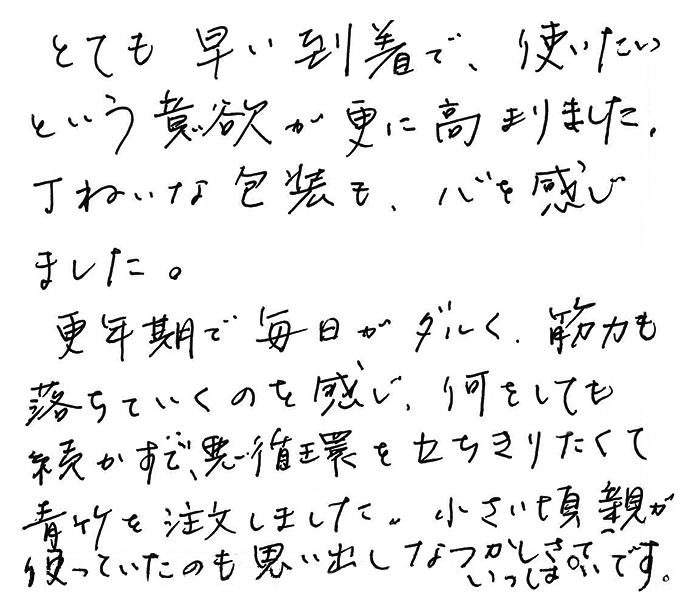 とても早い到着で、使いたい
という意欲が更に高まりました。
丁ねいな包装も、心を感じ
ました。
更年期で毎日がダルく、筋力も
落ちていくのを感じ、何をしても
続かずで、悪循環をたちきりたくて
青竹を注文しました。小さい頃親が
使っていたのも思い出しなつかしさで
いっぱいです。